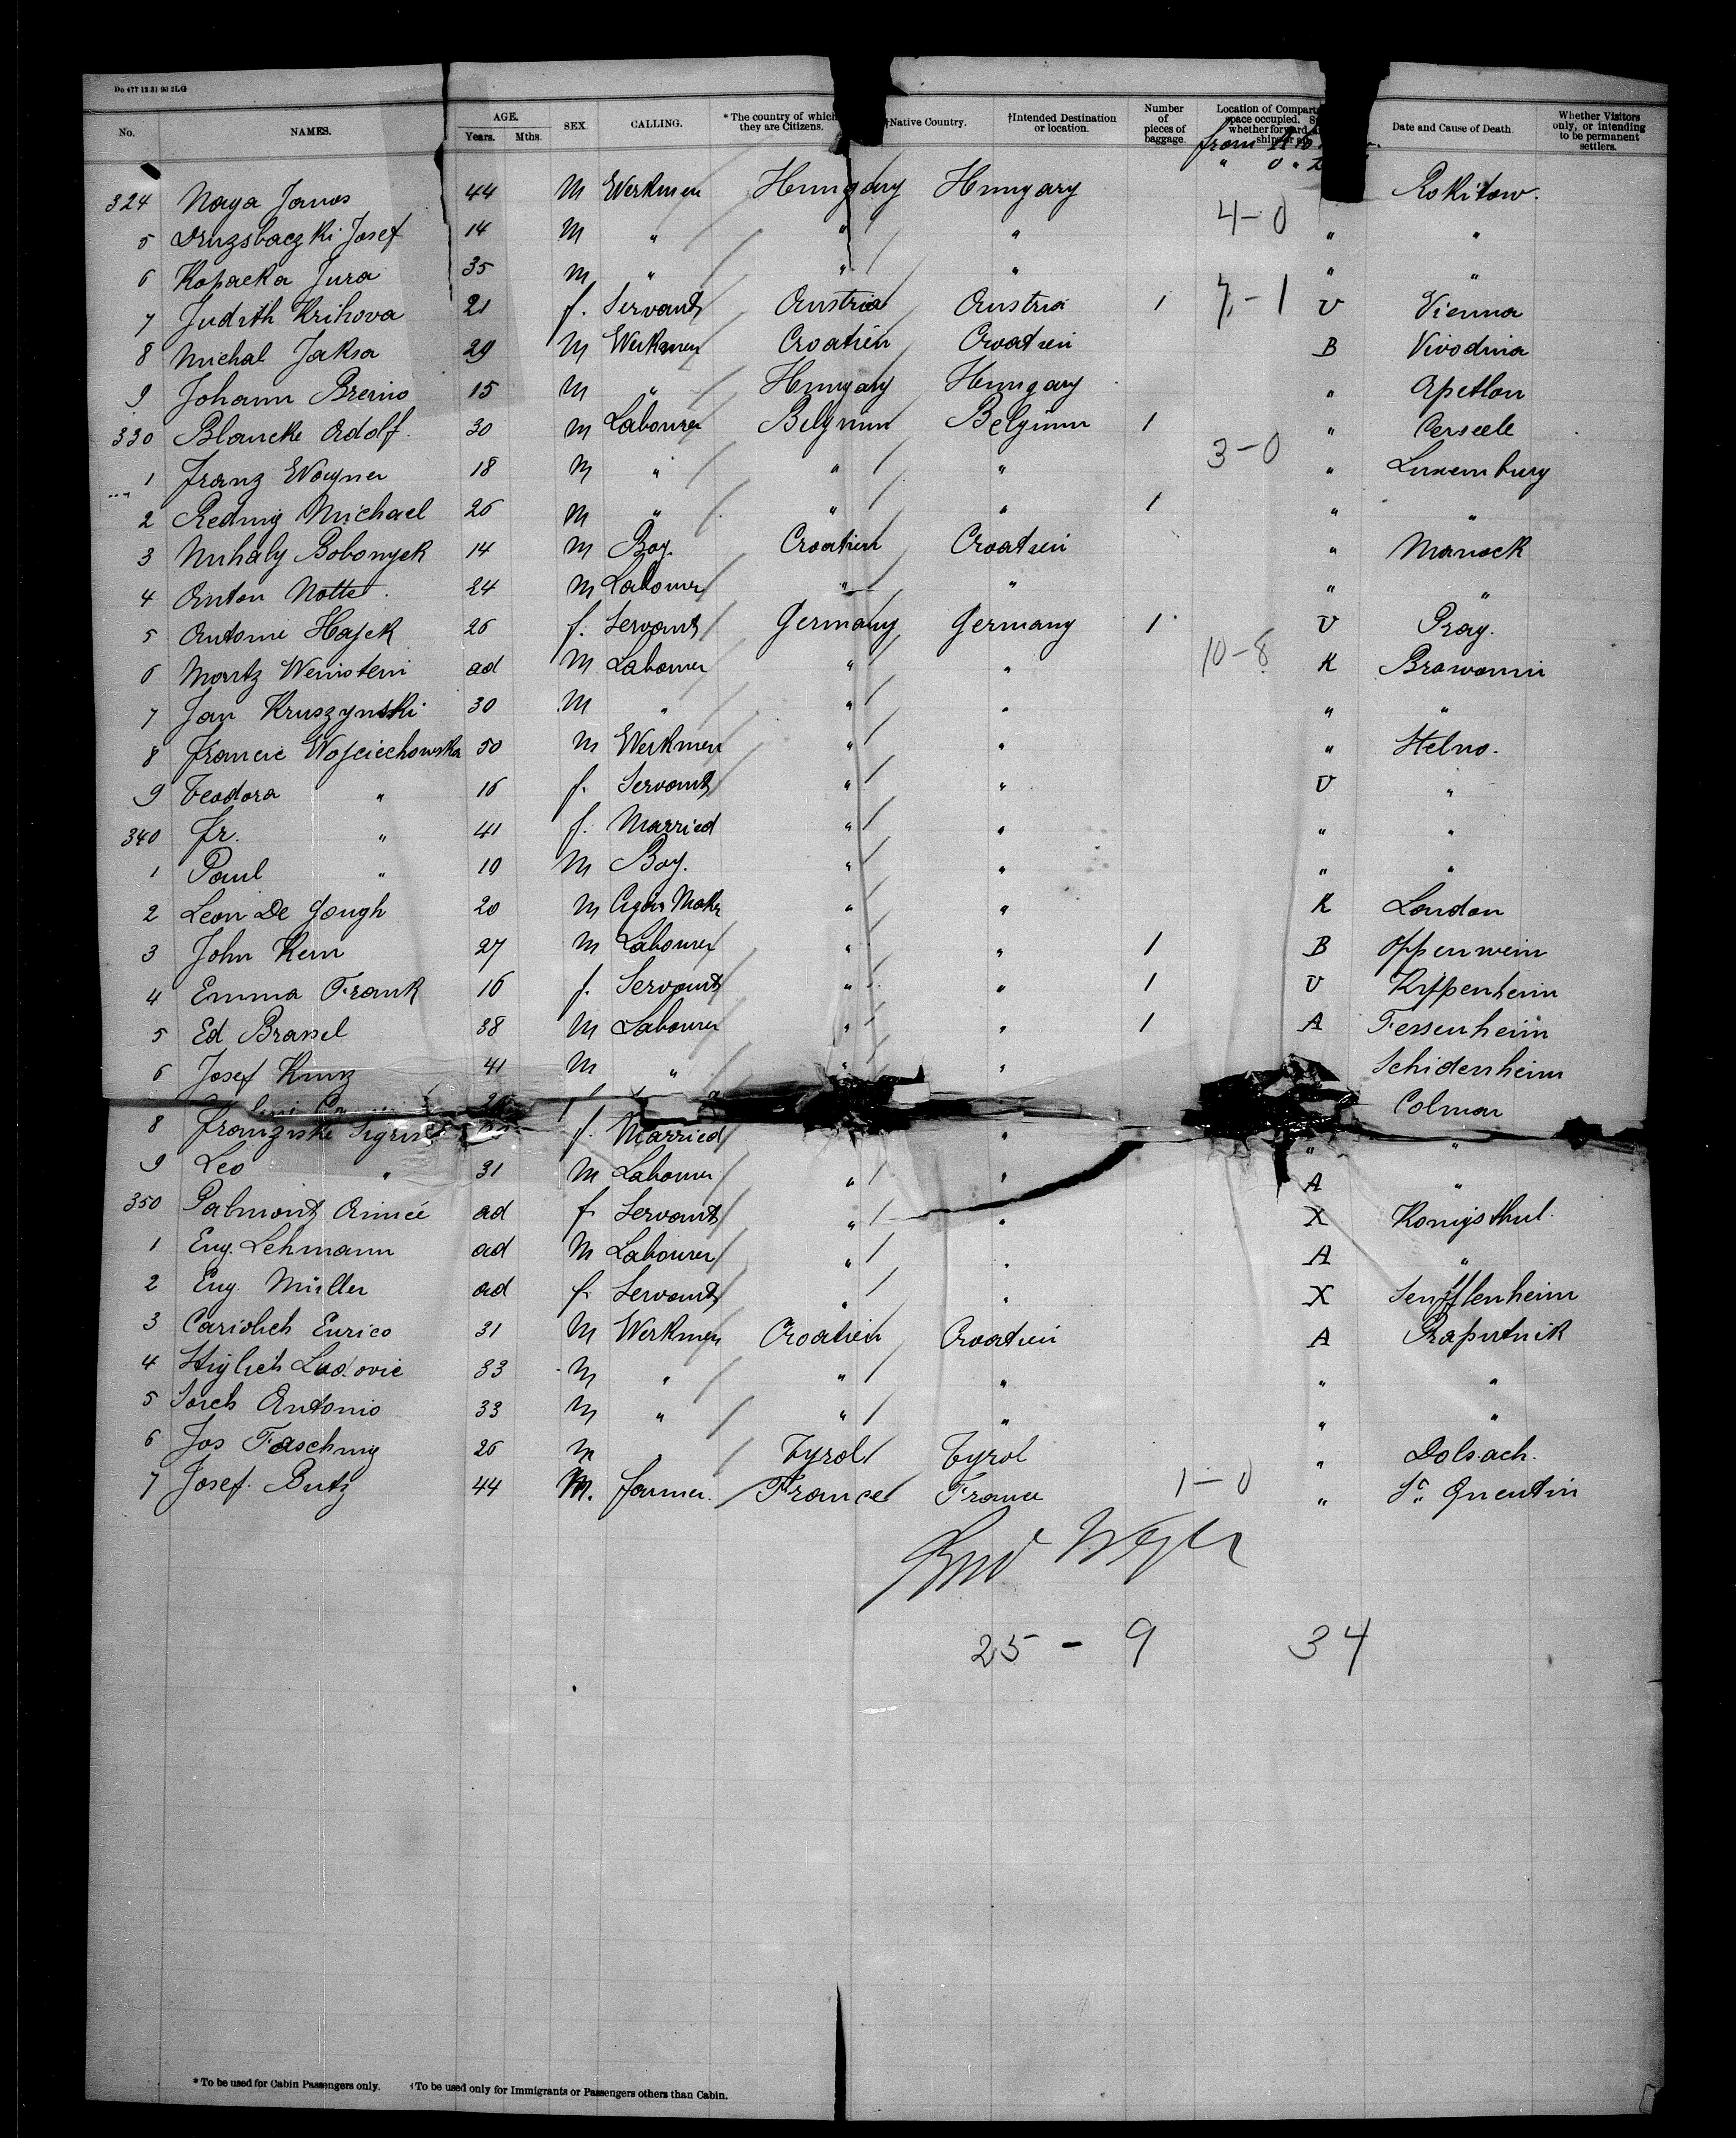 Do 477 12 31 93 2LG
No. NAMES. AGE. Years. Mths. SEX. CALLING. *The country of which they are Citizens. †Native Country. †Intended Destination or location. Number of pieces of baggage. Location of Compart space occupied. whether forward ship Date and Cause of Death. Whether Visitors only, or intending to be permanent settlers.
from
" 0 "
324 Naya Janos 44 M Workmen Hungary Hungary Rokitow.
4-0
5 Druzsbaczki Josef 14 M " " " " "
6 Kopacka Jura 35 M " " " " "
7 Judith Krihova 21 f. Servant Austria Austria 1 7-1 V Vienna
8 Michal Jaksa 29 M Workmen Croatien Croatien B Vivodina
9 Johann Breino 15 M " Hungary Hungary " Apetlon
330 Blancke Adolf. 30 M Labourer Belgium Belgium 1 "
3-0
1 Franz Wagner 18 M " " " " Luxemburg
2 Reding Michael 26 M " " " 1 " "
3 Mihaly Bobonyek 14 M Boy. Croatien Croatien " Marock
4 Anton Notte. 24 M Labourer " " " "
5 Antonie Hajek 26 f. Servant Germany Germany 1 V Prag.
10-8
6 Moritz Weinstein ad M Labourer " " K
7 Jan Kruszynski 30 M " " " " "
8 Wojciechowska 50 M Workmen " " "
9 Teodora " 16 f. Servant " " V "
340 Fr. " 41 f. Married " " " "
1 Paul " 10 M Boy. " " " "
2 Leon De Jongh 20 M Cigar Makr " " K London
3 John Kern 27 M Labourer " " 1 B Oppenweim
4 Emma Frank 16 f. Servant " " 1 V Kippenheim
5 Ed Brassel 38 M Labourer " " 1 A Fessenheim
6 Josef Kunz 41 M " " " Schidernheim
Colmar
8 Franziska f. Married " " "
9 Leo " 31 M Labourer " " A "
350 Palmont Aimée ad f. Servant " " X Konigsthul.
1 Eug. Lehmann ad M Labourer " " A "
2 Eug. Müller ad f. Servant " " X Senfflenheim
3 Cariolich Enrico 31 M Workmen Croatien Croatien A Praputnik
4 Stiglich Ludovic 33 M " " " " "
5 Sorch Antonio 33 M " " " " "
6 Jos Fasching 26 M " Tyrol Tyrol " Dolsach.
7 Josef. Butz 44 M. farmer. France France 1-0 " St. Quentin
25 - 9 34
*To be used for Cabin Passengers only. †To be used only for Immigrants or Passengers others than Cabin.